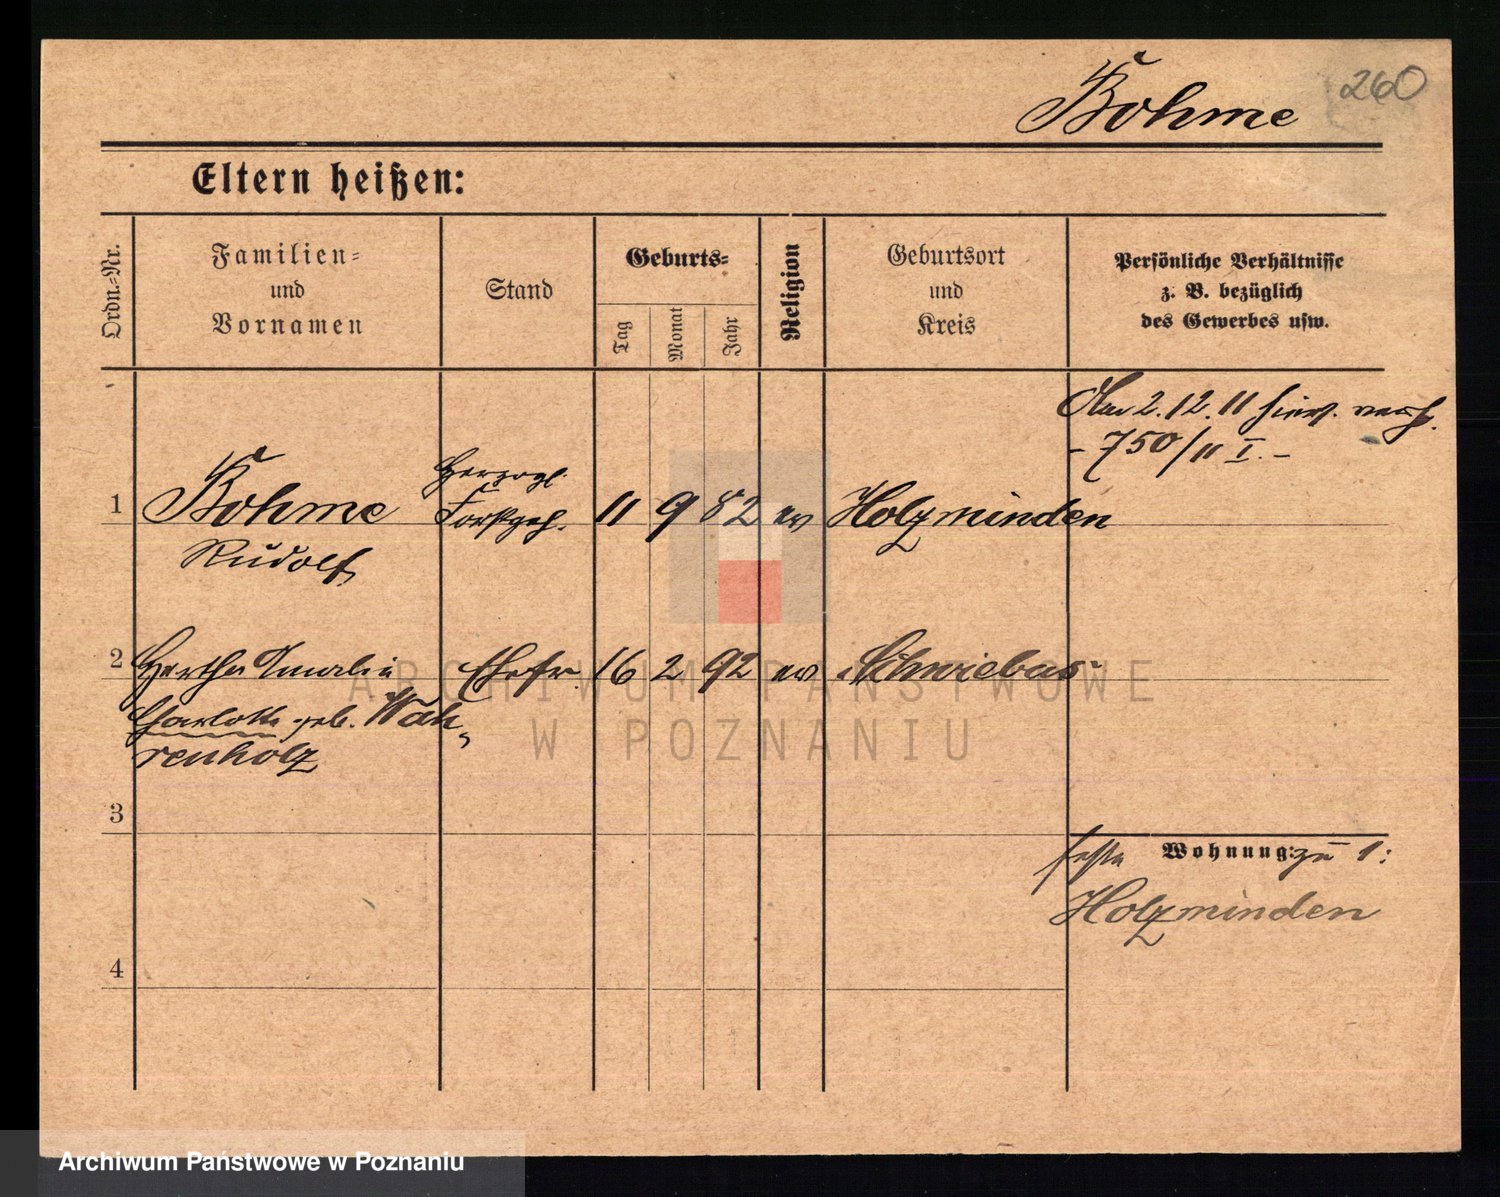 Bohme
260
Eltern heißen:
Ordn.-Nr.
Familien-
und
Vornamen
Stand
Geburts-
Tag
Monat
Jahr
Religion
Geburtsort
und
Kreis
Persönliche Verhältnisse
z. B. bezüglich
des Gewerbes usw.
Am 2.12.11 hierv. verh.
- 750/11 I. -
1
Bohme
Rudolf
Herzogl.
Forstgeh.
11 9 82 ev Holzminden
2
Hertha Amalie
Charlotte geb. Wah-
renholz
Ehefr. 16 2 92 ev Schwiebus
3
feste Wohnung: zu 1:
Holzminden
4
ARCHIWUM PAŃSTWOWE
W POZNANIU
Archiwum Państwowe w Poznaniu